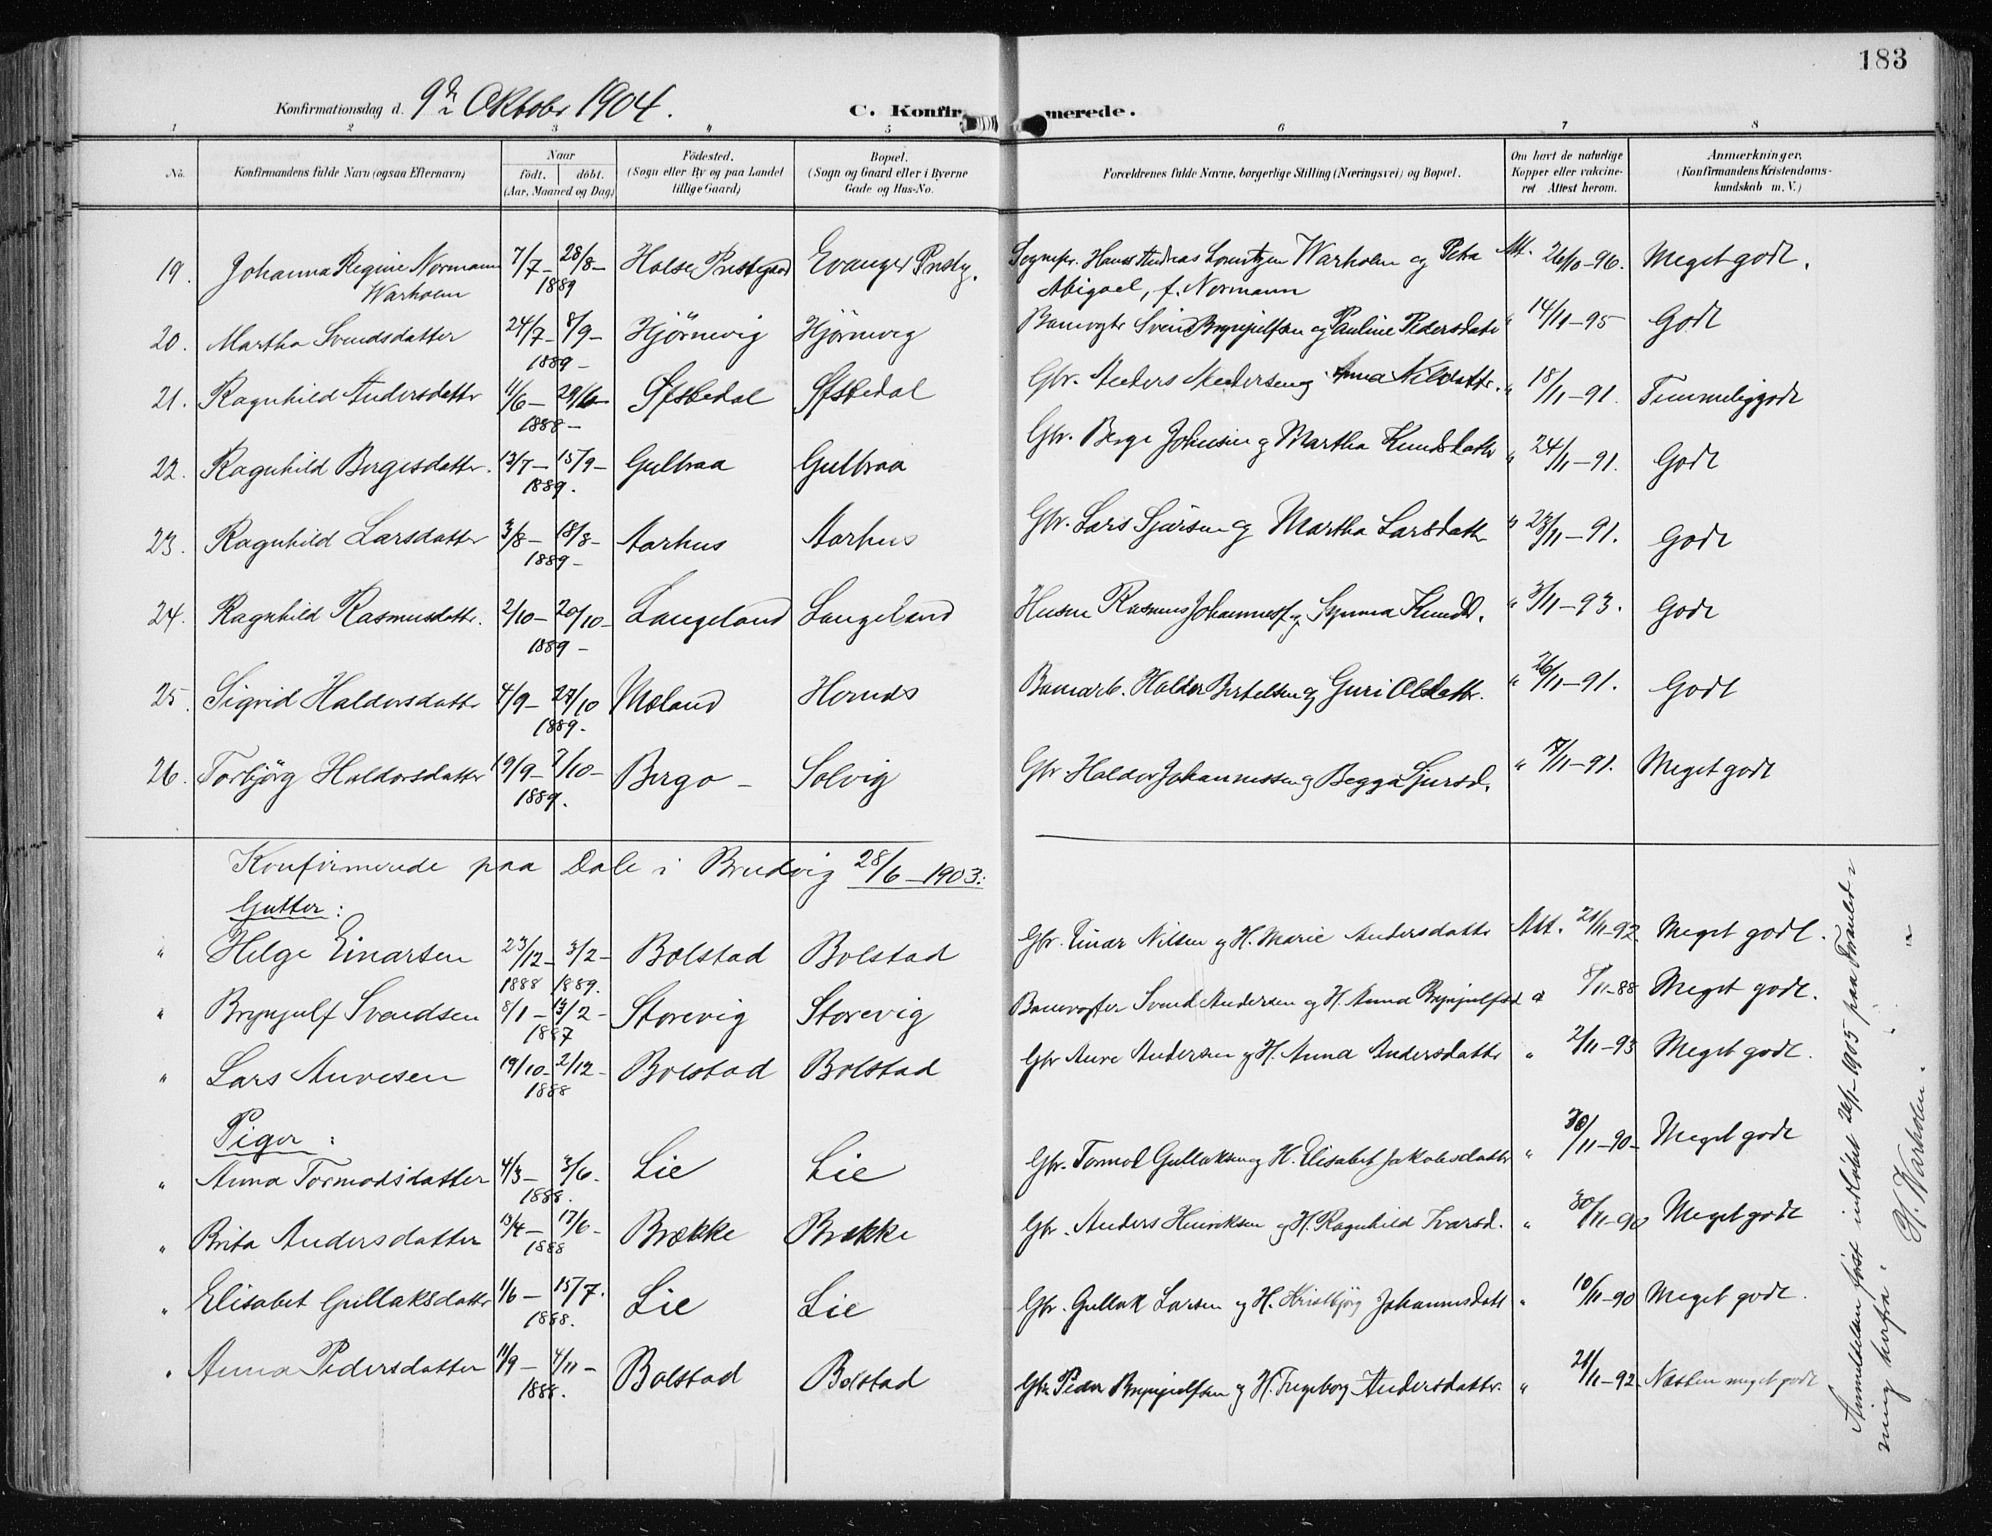 183
Konfirmationsdag d. 9de Oktober 1904.
C. Konfirmerede.
1 2 3 4 5 6 7 8
No. Konfirmandens fulde Navn (ogsaa Efternavn) Naar født. døbt. (Aar, Maaned og Dag) Fødested. (Sogn eller By og paa Landet tillige Gaard) Bopæl. (Sogn og Gaard eller i Byerne Gade og Hus-No. Forældrenes fulde Navne, borgerlige Stilling (Næringsvei) og Bopæl. Om havt de naturlige Kopper eller vakcineret Attest herom. Anmærkninger. (Konfirmandens Kristendomskundskab m. V.)
19. Johanna Regine Normann 7/7 – 28/8 – Halse Prestegaard Evanger Prestg. Sognepr. Hans Andreas Lorentzen Warholm og Petra Att. 26/10–96. Meget godt.
Warholm 1889 Abigael, f. Normann
20. Martha Svendsdatter 24/7 – 8/9 – 1889 – Hjörnevig Hjörnevig Banevogter Svein Brynjulfsen og Pauline Pedersdatr " 14/11–95 Godt
21. Ragnhild Andersdatter 11/6 – 29/6 – 1888 – Öfstedal Öfstedal Gbr. Anders Andersen og Anna Nilsdattr. " 18/11–91. Temmelig godt
22. Ragnhild Bergesdatter. 13/7 – 15/9 – 1889. Gulbraa Gulbraa Gbr. Berge Johnsen og Martha Knudsdattr " 24/11–91. Godt
23. Ragnhild Larsdatter 3/8 – 18/8 – 1889 – Aarhus Aarhus Gbr. Lars Sjursen og Martha Larsdattr " 23/11–91. Godt
24. Ragnhild Rasmusdattr. 2/10 – 20/10 – 1889 – Langeland Langeland Husm. Rasmus Johannesf. og Synneva Knudsd. " 3/11–93. Godt
25. Sigrid Haldorsdatter 4/9 – 27/10 1889. Mæland Hernes Banearb. Haldor Bertelsen og Guri Olsdattr. " 26/11–91. Godt
26. Torbjörg Haldorsdatter 19/9 – 7/10 – 1889. Bergo – Solvig Gbr Haldor Johannessen og Begga Sjursd. " 17/11–91. Meget godt
Konfirmerede paa Dale i Bruvig 28/6 – 1903:
Gutter:
" Helge Einarsen 23/12 – 1888 3/2 – 1889. Bolstad Bolstad Gbr. Einar Nilsen og H. Marie Andersdattr Att. 21/11–92. Meget godt.
" Brynjulf Svendsen 8/1 – 13/2 – 1887 Storevig Storevig Banevogter Svend Andersen og H. Anna Brynjulfsd " 8/11–88 Meget godt.
" Lars Anvesen 19/10 – 2/12 – 1888 Bolstad Bolstad Gbr Anve Andersen og H. Anna Andersdattr " 2/11–93 Meget godt.
Piger:
" Anna Tormodsdatter 4/3 – 3/6 – 1888. Lie Lie Gbr. Tormod Gullaksen og H. Elisabet Jakobsdattr " 30/11–90– Meget godt
" Brita Andersdatter 13/4 – 17/6 – 1888 Brække Brække Gbr. Anders Henriksen og H. Ragnhild Ivarsd. " 30/11–90 Meget godt
" Elisabet Gullaksdattr 1/6 – 15/7. 1888. Lie Lie Gbr. Gullak Larsen og H. Kristbjörg Johannesdatt " 10/11–90 Meget godt.
" Anna Pedersdatter 11/9 – 4/11 – 1888. Bolstad Bolstad Gbr. Peder Brynjulfsen og H. Ingeborg Andersdattr. " 21/11–92. Næsten meget godt
Anmeldelsen först indlöbet 26/1–1905 paa Foranled-
ning herfra. H. Warholm.